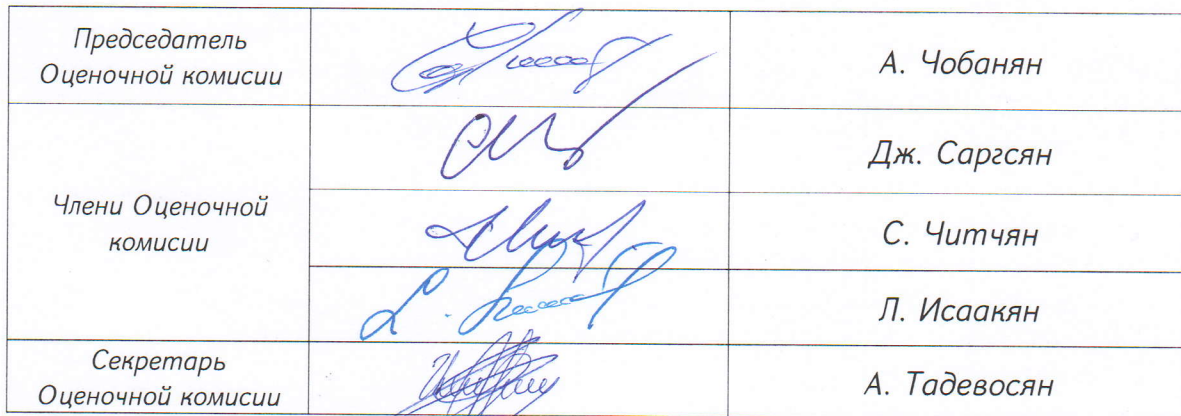 Председатель
Оценочной комисии
А. Чобанян
Дж. Саргсян
Члени Оценочной
комисии
С. Читчян
Л. Исаакян
Секретарь
Оценочной комисии
А. Тадевосян